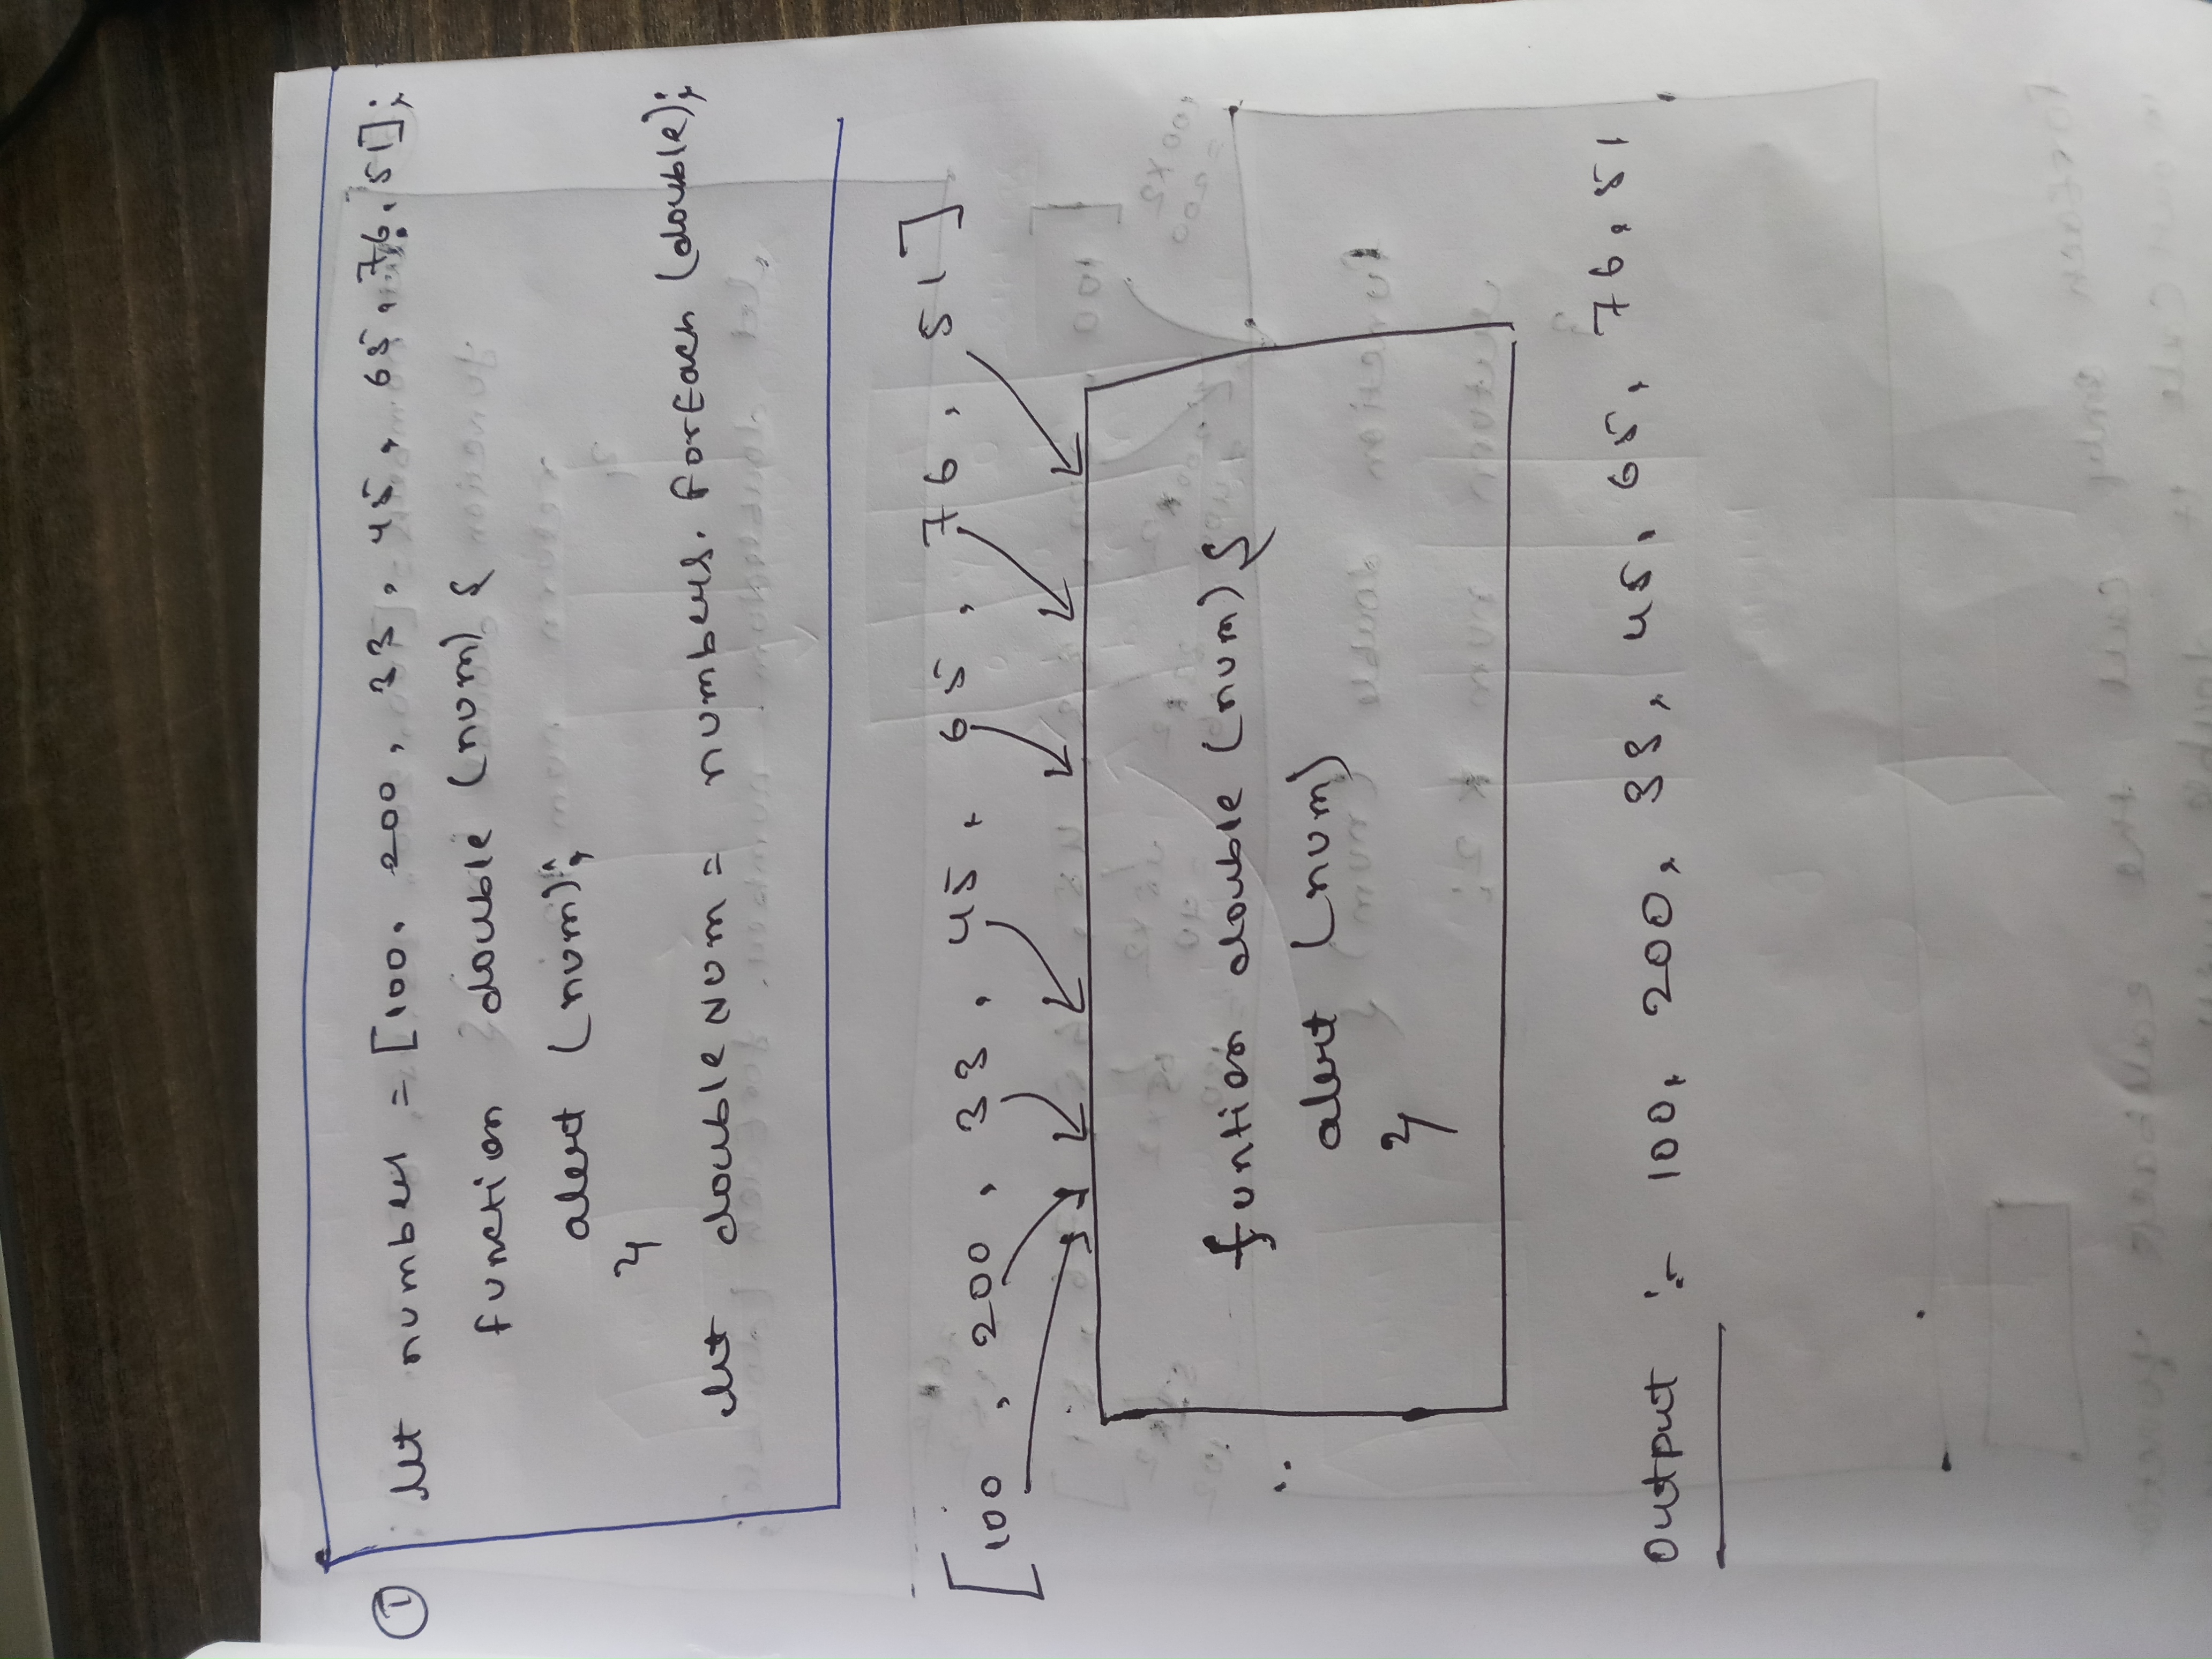 1
let numbers = [100, 200, 33, 45, 65, 76, 51];
function double (num) {
alert (num);
}
let doubleNum = numbers.forEach (double);
[100, 200, 33, 45, 65, 76, 51]
funtion double (num) {
alert (num)
}
output :- 100, 200, 33, 45, 65, 76, 51